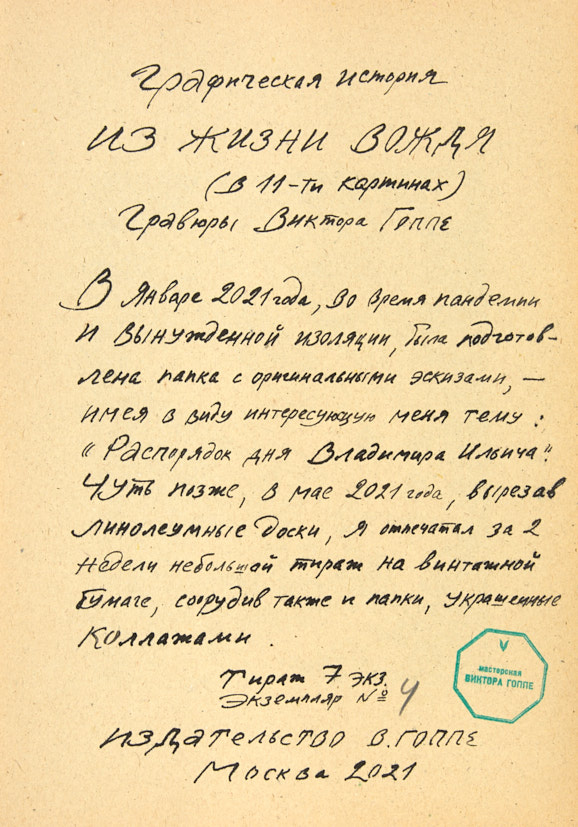 Графическая история
ИЗ ЖИЗНИ ВОЖДЯ
(В 11-ти картинах)
Гравюры Виктора Гоппе
В Январе 2021 года, во время пандемии
и вынужденной изоляции, была подготов-
лена папка с оригинальными эскизами, —
имея в виду интересующую меня тему:
"Распорядок дня Владимира Ильича".
Чуть позже, в мае 2021 года, вырезав
линолеумные доски, я отпечатал за 2
недели небольшой тираж на винтажной
бумаге, соорудив также и папки, украшенные
коллажами.
Тираж 7 экз.
Экземпляр № 4
мастерская
ВИКТОРА ГОППЕ
ИЗДАТЕЛЬСТВО В. ГОППЕ
Москва 2021